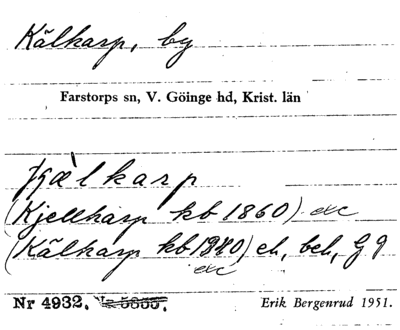 Kälkarp, by
Farstorps sn, V. Göinge hd, Krist. län
kæ̀lkarp
(Kjellkarp kb 1860) etc
(Kälkarp kb 1940) eh, beh, G 9
etc
Nr 4932. Erik Bergenrud 1951.